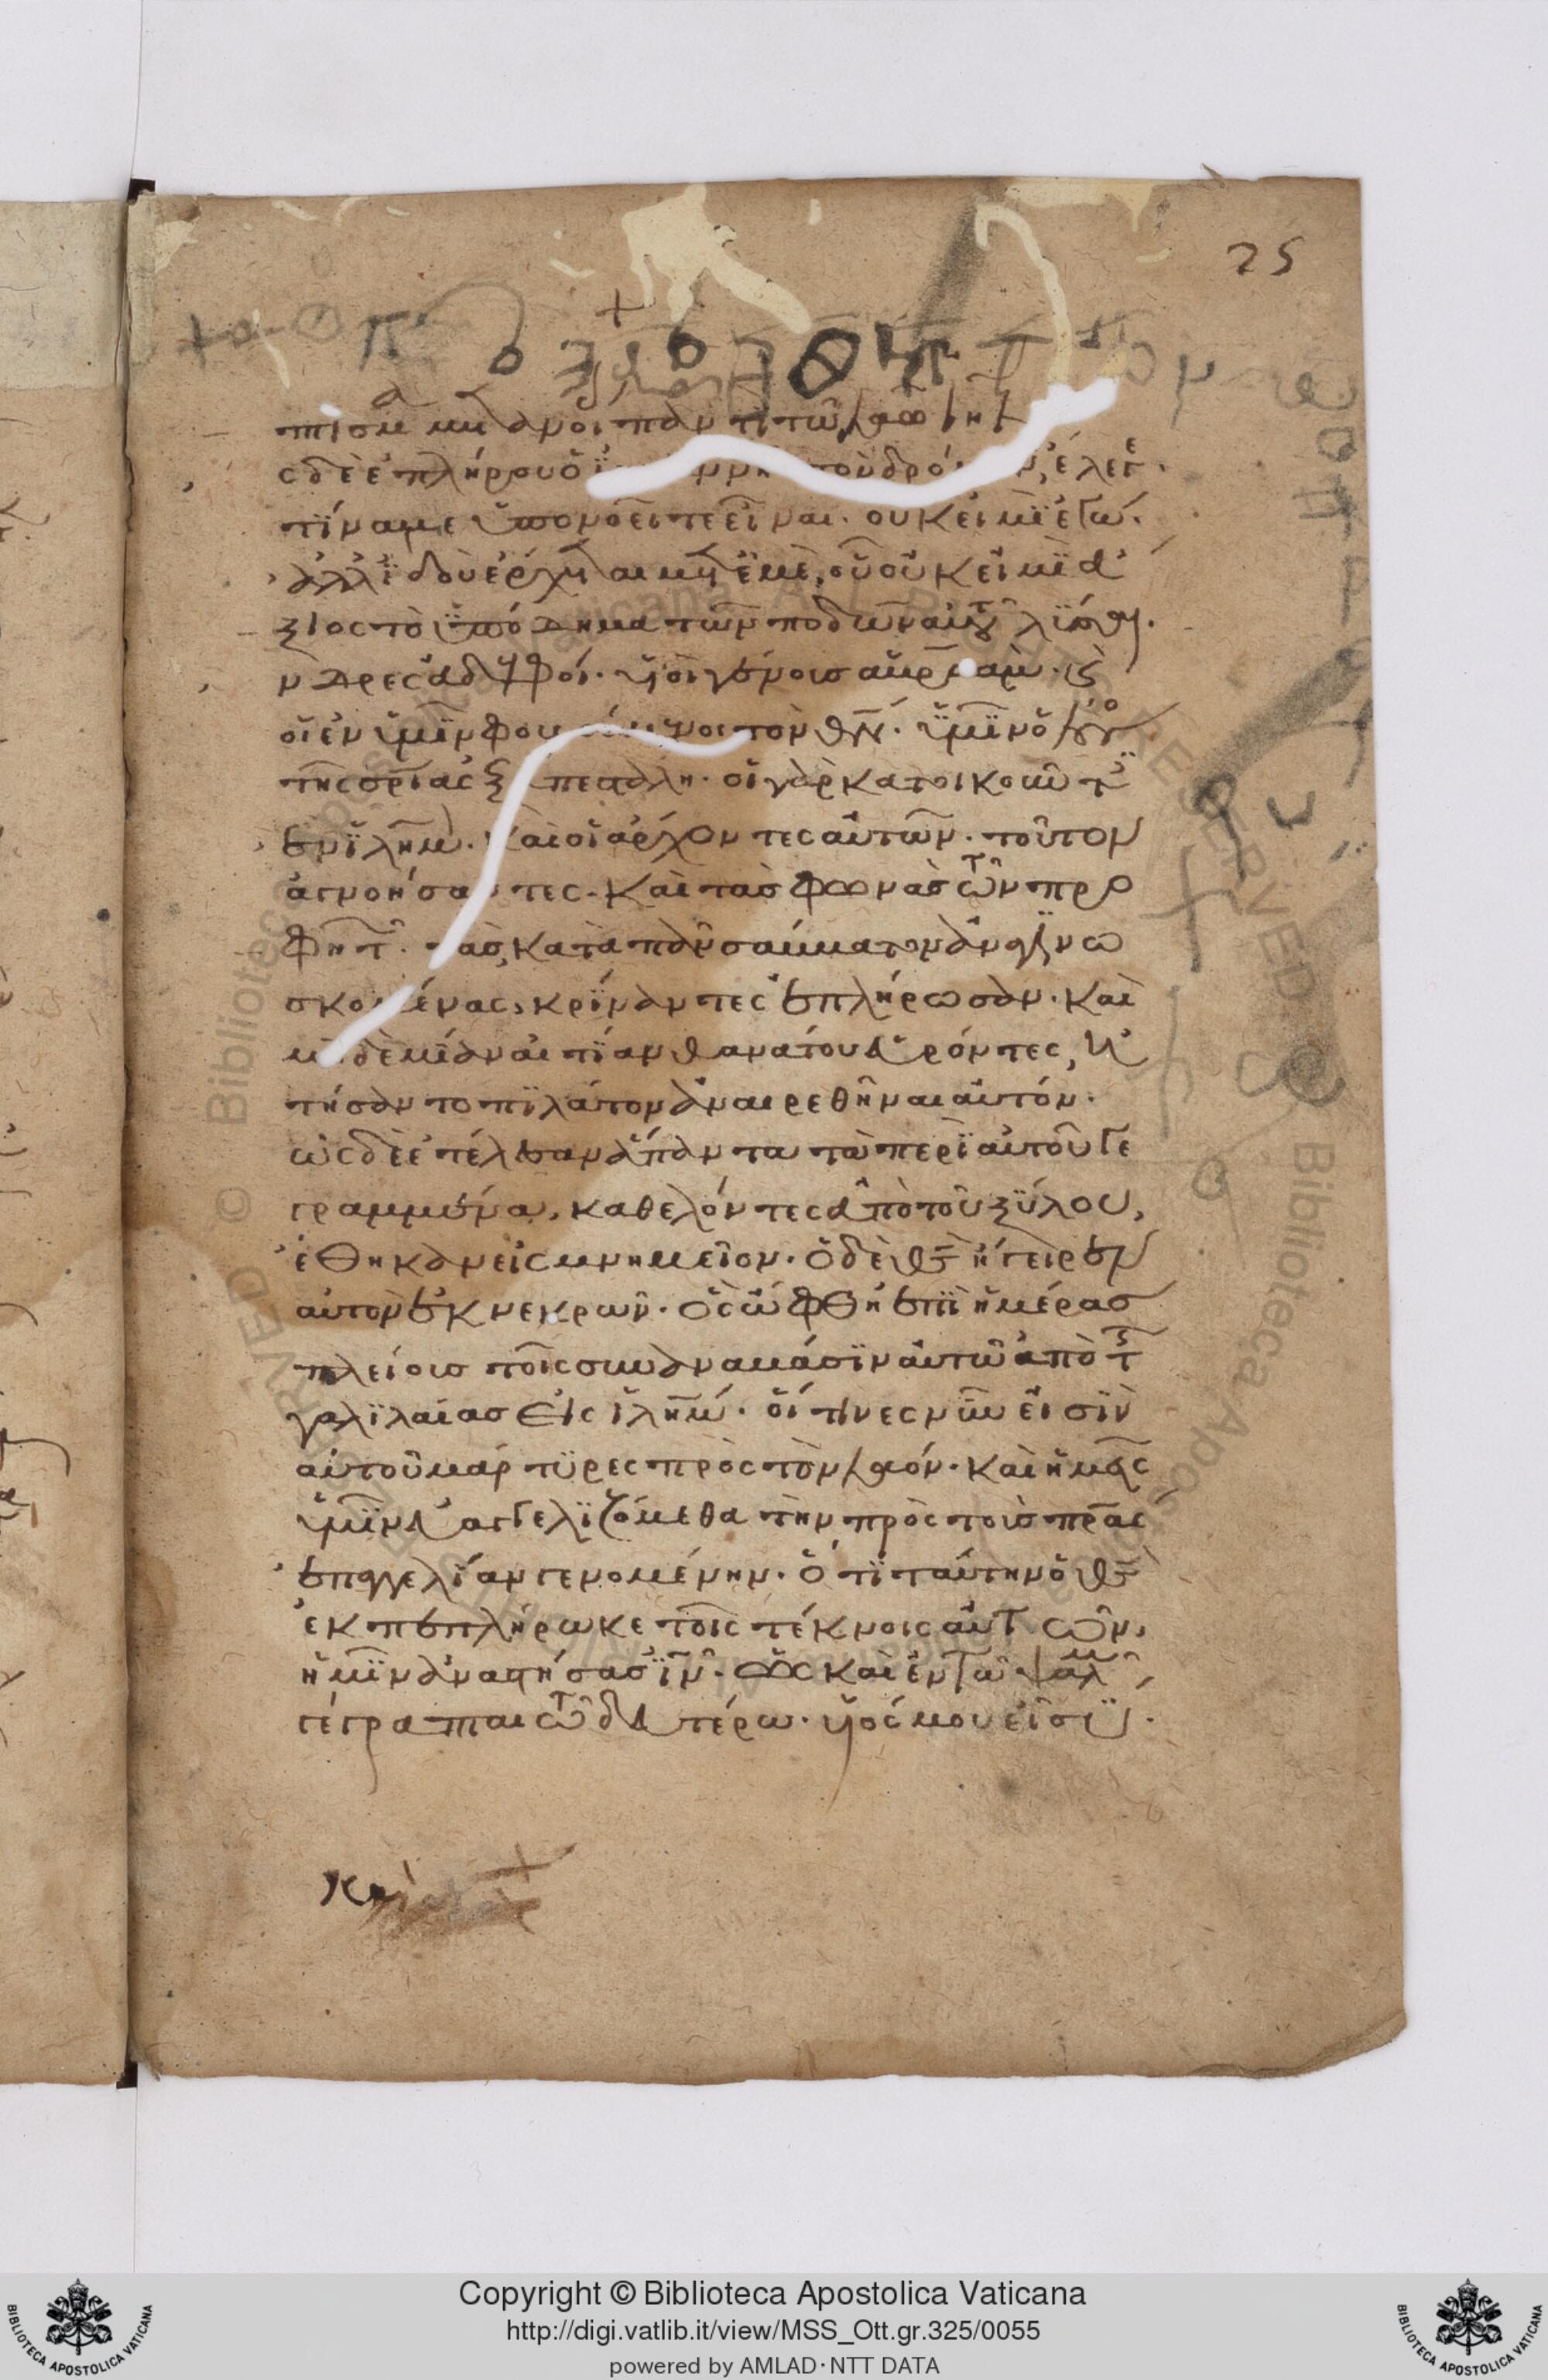 25
πτισμα μετανοίας παντὶ τῶ λαῶ ἰηλ
ς δὲ ἐπλήρου ὁ ἰω τὸν δρόμον, ἔλεγ.
τίνα με ὑπονοεῖτε εἶναι. οὐκ εἰμὶ ἐγώ.
ἀλλ ἰδοὺ ἔρχεται μετ ἐμὲ, οὗ οὐκ εἰμὶ ἄ
ξιος τὸ ὑπόδημα τῶν ποδῶν αὐτοῦ λῦσαι.
νδρες ἀδελφοί. υἱοὶ γένους ἀβραάμ. καὶ
οἱ ἐν ὑμῖν φοβούμενοι τὸν θν. ὑμῖν ὁ λόγο
τῆς σριας ἐξαπεστάλη. οἱ γὰρ κατοικοῦντ
ἐν ἰλημ. καὶ οἱ ἄρχοντες αὐτῶν. τοῦτον
ἀγνοήσαντες. καὶ τὰς φωνὰς τῶν προ
φητ. τὰς, κατὰ πᾶν σάββατον ἀναγινω
σκομένας, κρίναντες ἐπλήρωσαν. καὶ
μηδεμίαν αἰτίαν θανάτου εὑρόντες, ἠ
τήσαντο πιλάτον ἀναιρεθῆναι αὐτόν.
ὡς δὲ ἐτέλεσαν ἅπαντα τὰ περὶ αὐτοῦ γε
γραμμένα, καθελόντες ἀπὸ τοῦ ξύλου,
ἔθηκαν εἰς μνημεῖον. ὁ δὲ θς ἤγειρεν
αὐτὸν ἐκ νεκρῶν. ὃς ὤφθη ἐπὶ ἡμέρας
πλείους τοῖς συναναβάσιν αὐτῶ ἀπὸ τ
γαλιλαίας εἰς ἰλημ. οἵτινες νῦν εἰσὶν
αὐτοῦ μάρτυρες πρὸς τὸν λαόν. καὶ ἡμεῖς
ὑμῖν εὐαγγελιζόμεθα τὴν πρὸς τοὺς πρας
ἐπαγγελίαν γενομένην. ὅτι ταύτην ὁ θς
ἐκπεπλήρωκε τοῖς τέκνοις αὐτῶν,
ἡμῖν ἀναστήσας ιν. ὡς καὶ ἐν τῶ ψαλμ
γέγραπται τῶ δευτέρω. υἱός μου εἶ σύ.
Copyright © Biblioteca Apostolica Vaticana
http://digi.vatlib.it/view/MSS_Ott.gr.325/0055
powered by AMLAD·NTT DATA